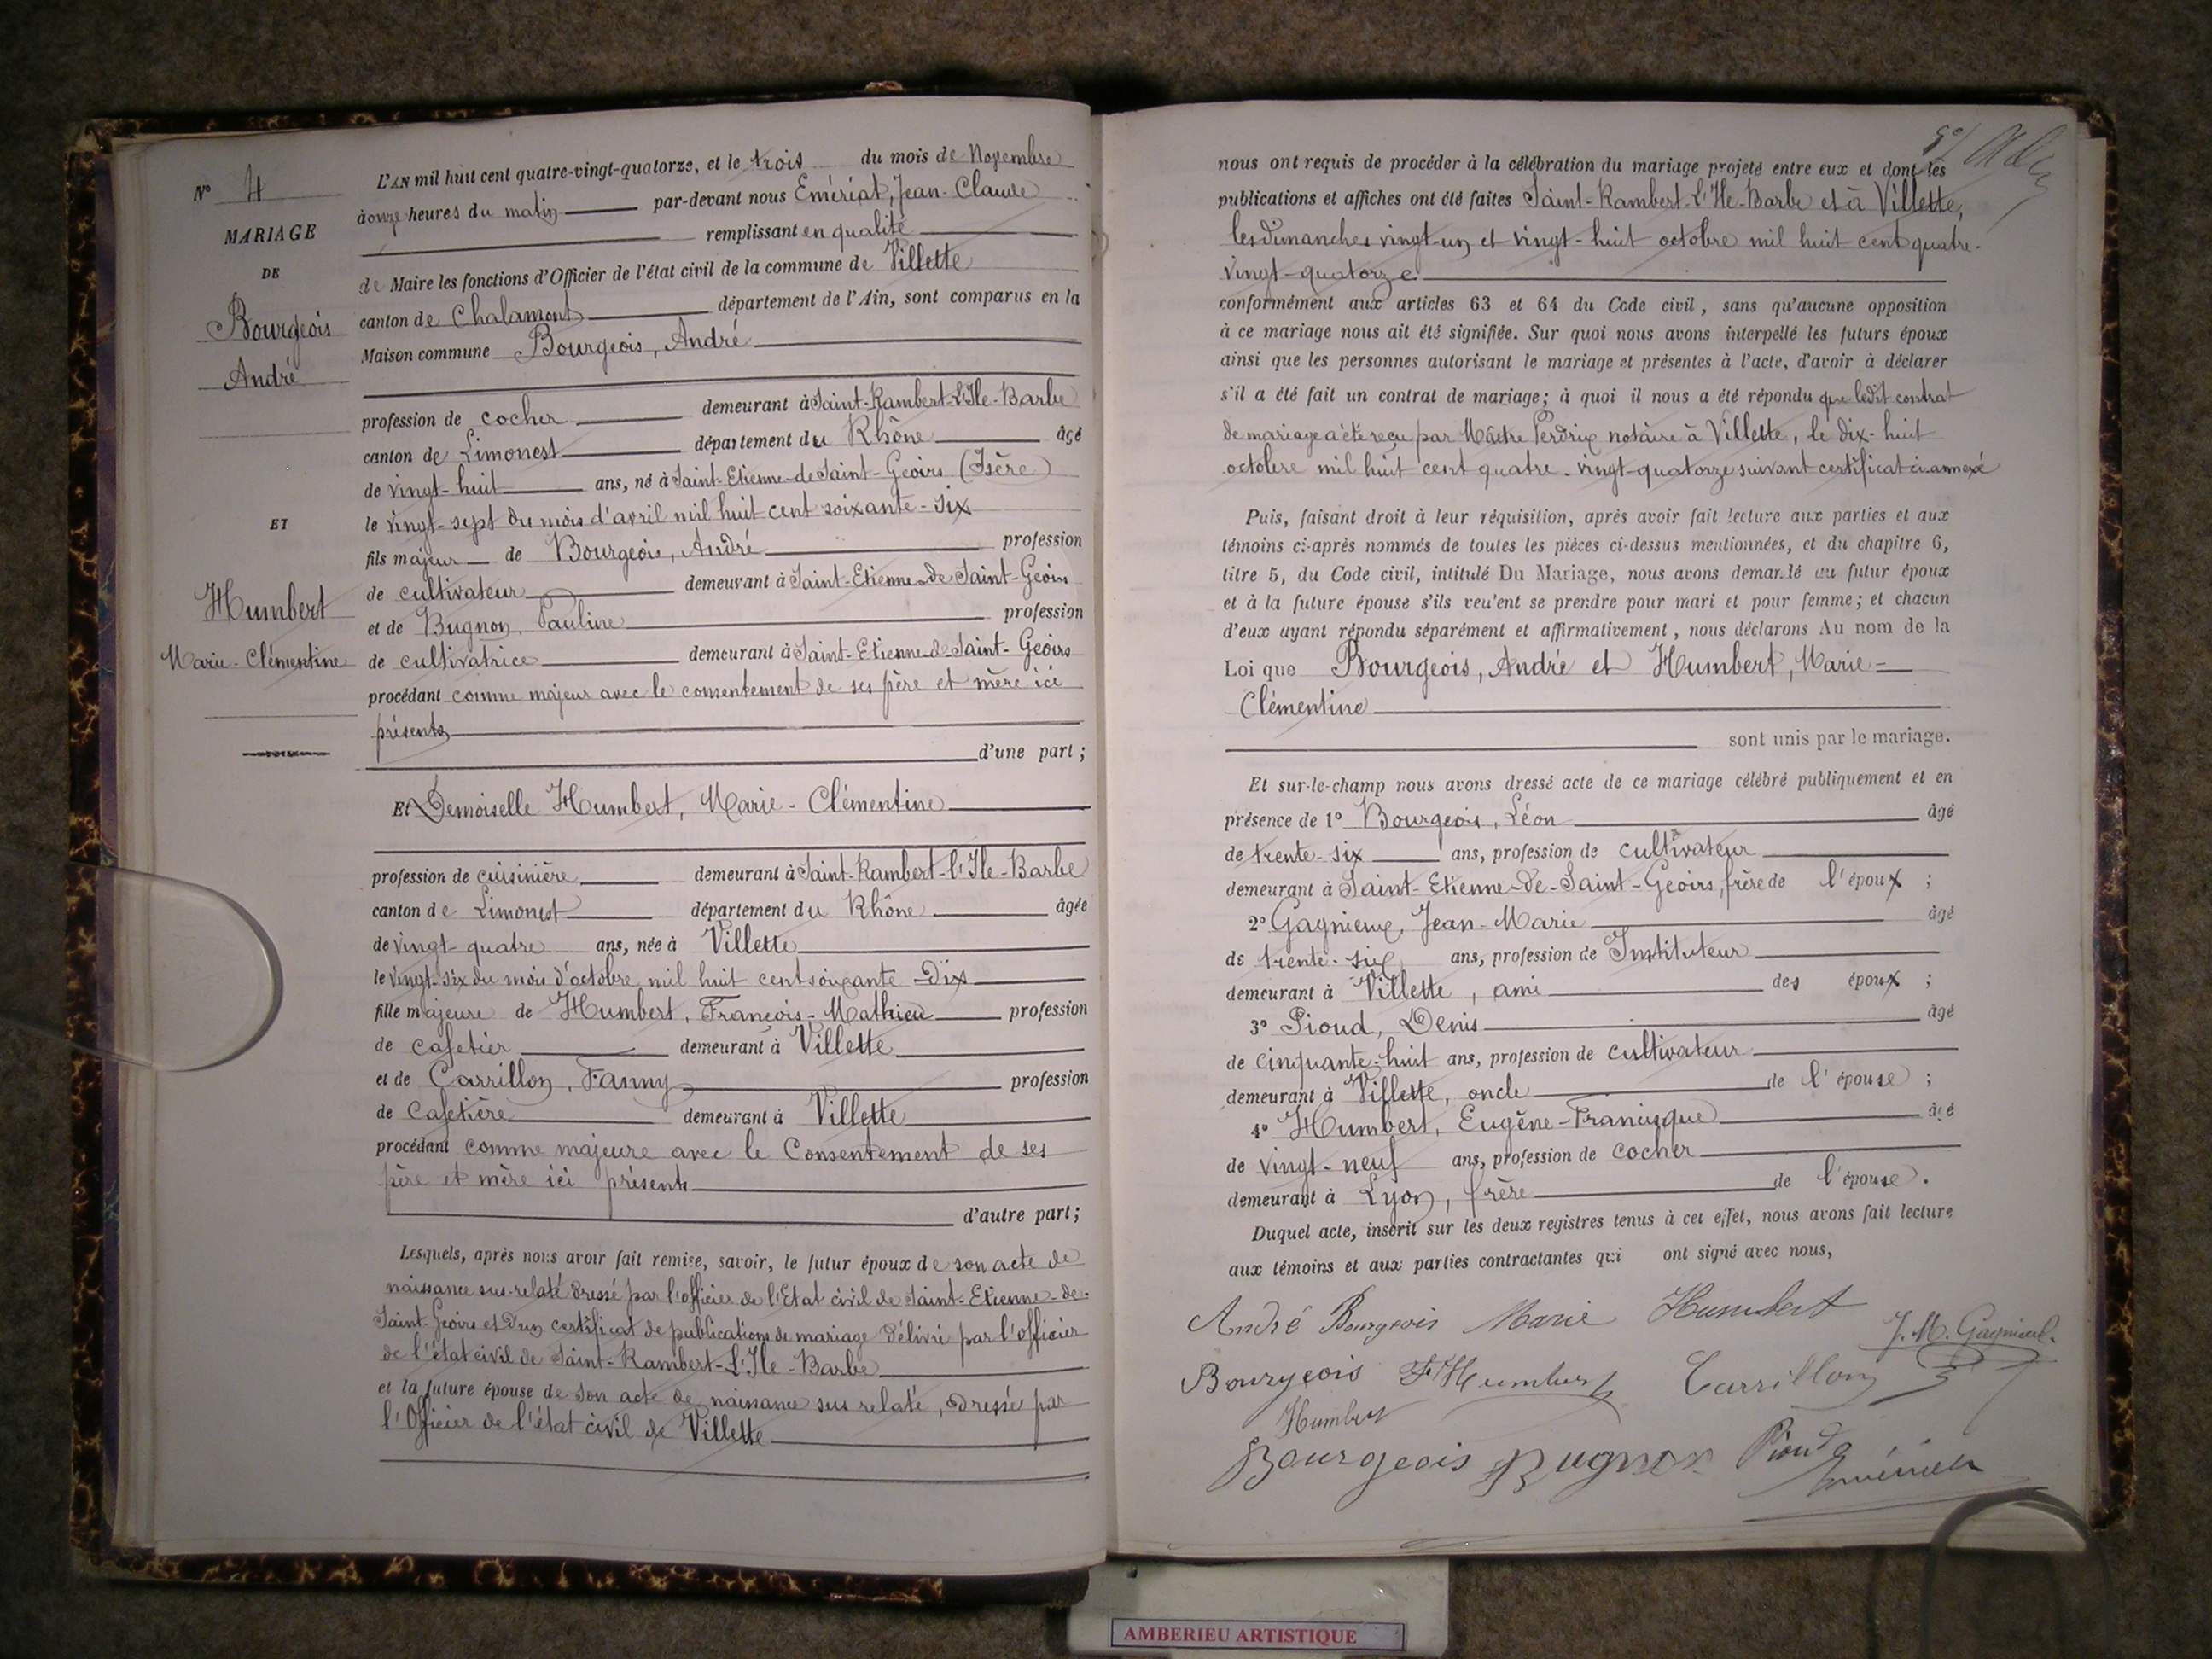 N° 4
MARIAGE
DE
Bourgeois
André
ET
Humbert
Marie-Clémentine
L'AN mil huit cent quatre-vingt-quatorze, et le trois du mois de Novembre
à onze heures du matin par-devant nous Emériat, Jean-Claude
remplissant en qualité
de Maire les fonctions d'Officier de l'état civil de la commune de Villette
canton de Chalamont département de l'Ain, sont comparus en la
Maison commune Bourgeois, André
profession de cocher demeurant à Saint-Rambert-L'Ile-Barbe
canton de Limonest département du Rhône âgé
de vingt-huit ans, né à Saint-Etienne-de-Saint-Geoirs (Isère)
le vingt-sept du mois d'avril mil huit cent soixante-six
fils majeur de Bourgeois, André profession
de cultivateur demeurant à Saint-Etienne-de-Saint-Geoirs
et de Bugnon, Pauline profession
de cultivatrice demeurant à Saint-Etienne-de-Saint-Geoirs
procédant comme majeur avec le consentement de ses père et mère ici
présents
d'une part ;
Et Demoiselle Humbert, Marie-Clémentine
profession de cuisinière demeurant à Saint-Rambert-l'Ile-Barbe
canton de Limonest département du Rhône âgée
de vingt-quatre ans, née à Villette
le vingt-six du mois d'octobre mil huit cent soixante-dix
fille majeure de Humbert, François-Mathieu profession
de cafetier demeurant à Villette
et de Carrillon, Fanny profession
de cafetière demeurant à Villette
procédant comme majeure avec le Consentement de ses
père et mère ici présents
d'autre part ;
Lesquels, après nous avoir fait remise, savoir, le futur époux de son acte de
naissance sus-relaté dressé par l'officier de l'Etat civil de Saint-Etienne-de-
Saint-Geoirs et d'un certificat de publications de mariage délivré par l'officier
de l'état civil de Saint-Rambert-L'Ile-Barbe
et la future épouse de son acte de naissance sus relaté, dressé par
l'Officier de l'état civil de Villette
nous ont requis de procéder à la célébration du mariage projeté entre eux et dont les
publications et affiches ont été faites Saint-Rambert-L'Ile-Barbe et à Villette,
les dimanches vingt-un et vingt-huit octobre mil huit cent quatre-
vingt-quatorze
conformément aux articles 63 et 64 du Code civil, sans qu'aucune opposition
à ce mariage nous ait été signifiée. Sur quoi nous avons interpellé les futurs époux
ainsi que les personnes autorisant le mariage et présentes à l'acte, d'avoir à déclarer
s'il a été fait un contrat de mariage ; à quoi il nous a été répondu que ledit contrat
de mariage a été reçu par Maître Perdrix notaire à Villette, le dix-huit
octobre mil huit cent quatre-vingt-quatorze suivant certificat ci-annexé
Puis, faisant droit à leur réquisition, après avoir fait lecture aux parties et aux
témoins ci-après nommés de toutes les pièces ci-dessus mentionnées, et du chapitre 6,
titre 5, du Code civil, intitulé Du Mariage, nous avons demandé au futur époux
et à la future épouse s'ils veulent se prendre pour mari et pour femme ; et chacun
d'eux ayant répondu séparément et affirmativement, nous déclarons Au nom de la
Loi que Bourgeois, André et Humbert, Marie-
Clémentine
sont unis par le mariage.
Et sur-le-champ nous avons dressé acte de ce mariage célébré publiquement et en
présence de 1° Bourgeois, Léon âgé
de trente-six ans, profession de cultivateur
demeurant à Saint-Etienne-de-Saint-Geoirs, frère de l'époux ;
2° Gagnieux, Jean-Marie âgé
de trente-six ans, profession de Instituteur
demeurant à Villette, ami des époux ;
3° Pioud, Denis âgé
de cinquante-huit ans, profession de cultivateur
demeurant à Villette, oncle de l'épouse ;
4° Humbert, Eugène-Francisque âgé
de vingt-neuf ans, profession de cocher
demeurant à Lyon, frère de l'épouse.
Duquel acte, inscrit sur les deux registres tenus à cet effet, nous avons fait lecture
aux témoins et aux parties contractantes qui ont signé avec nous,
André Bourgeois Marie Humbert J. M. Gagnieux
Bourgeois F Humbert Carrillon
Humbert
Bourgeois Bugnon Pioud
AMBERIEU ARTISTIQUE